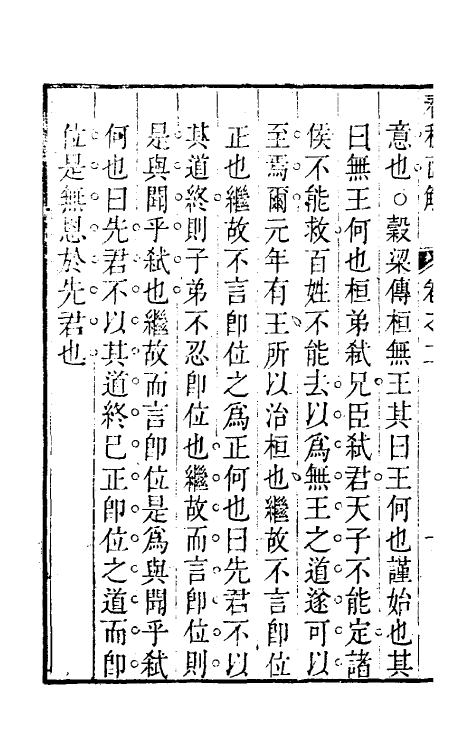 意也○穀梁傳桓無王其曰王何也謹始也其
曰無王何也桓弟弑兄臣弑君天子不能定諸
侯不能救百姓不能去以爲無王之道遂可以
至焉爾元年有王所以治桓也繼故不言卽位
正也繼故不言卽位之爲正何也曰先君不以
其道終則子弟不忍卽位也繼故而言卽位則
是與聞乎弑也繼故而言卽位是爲與聞乎弑
何也曰先君不以其道終已正卽位之道而卽
位是無恩於先君也